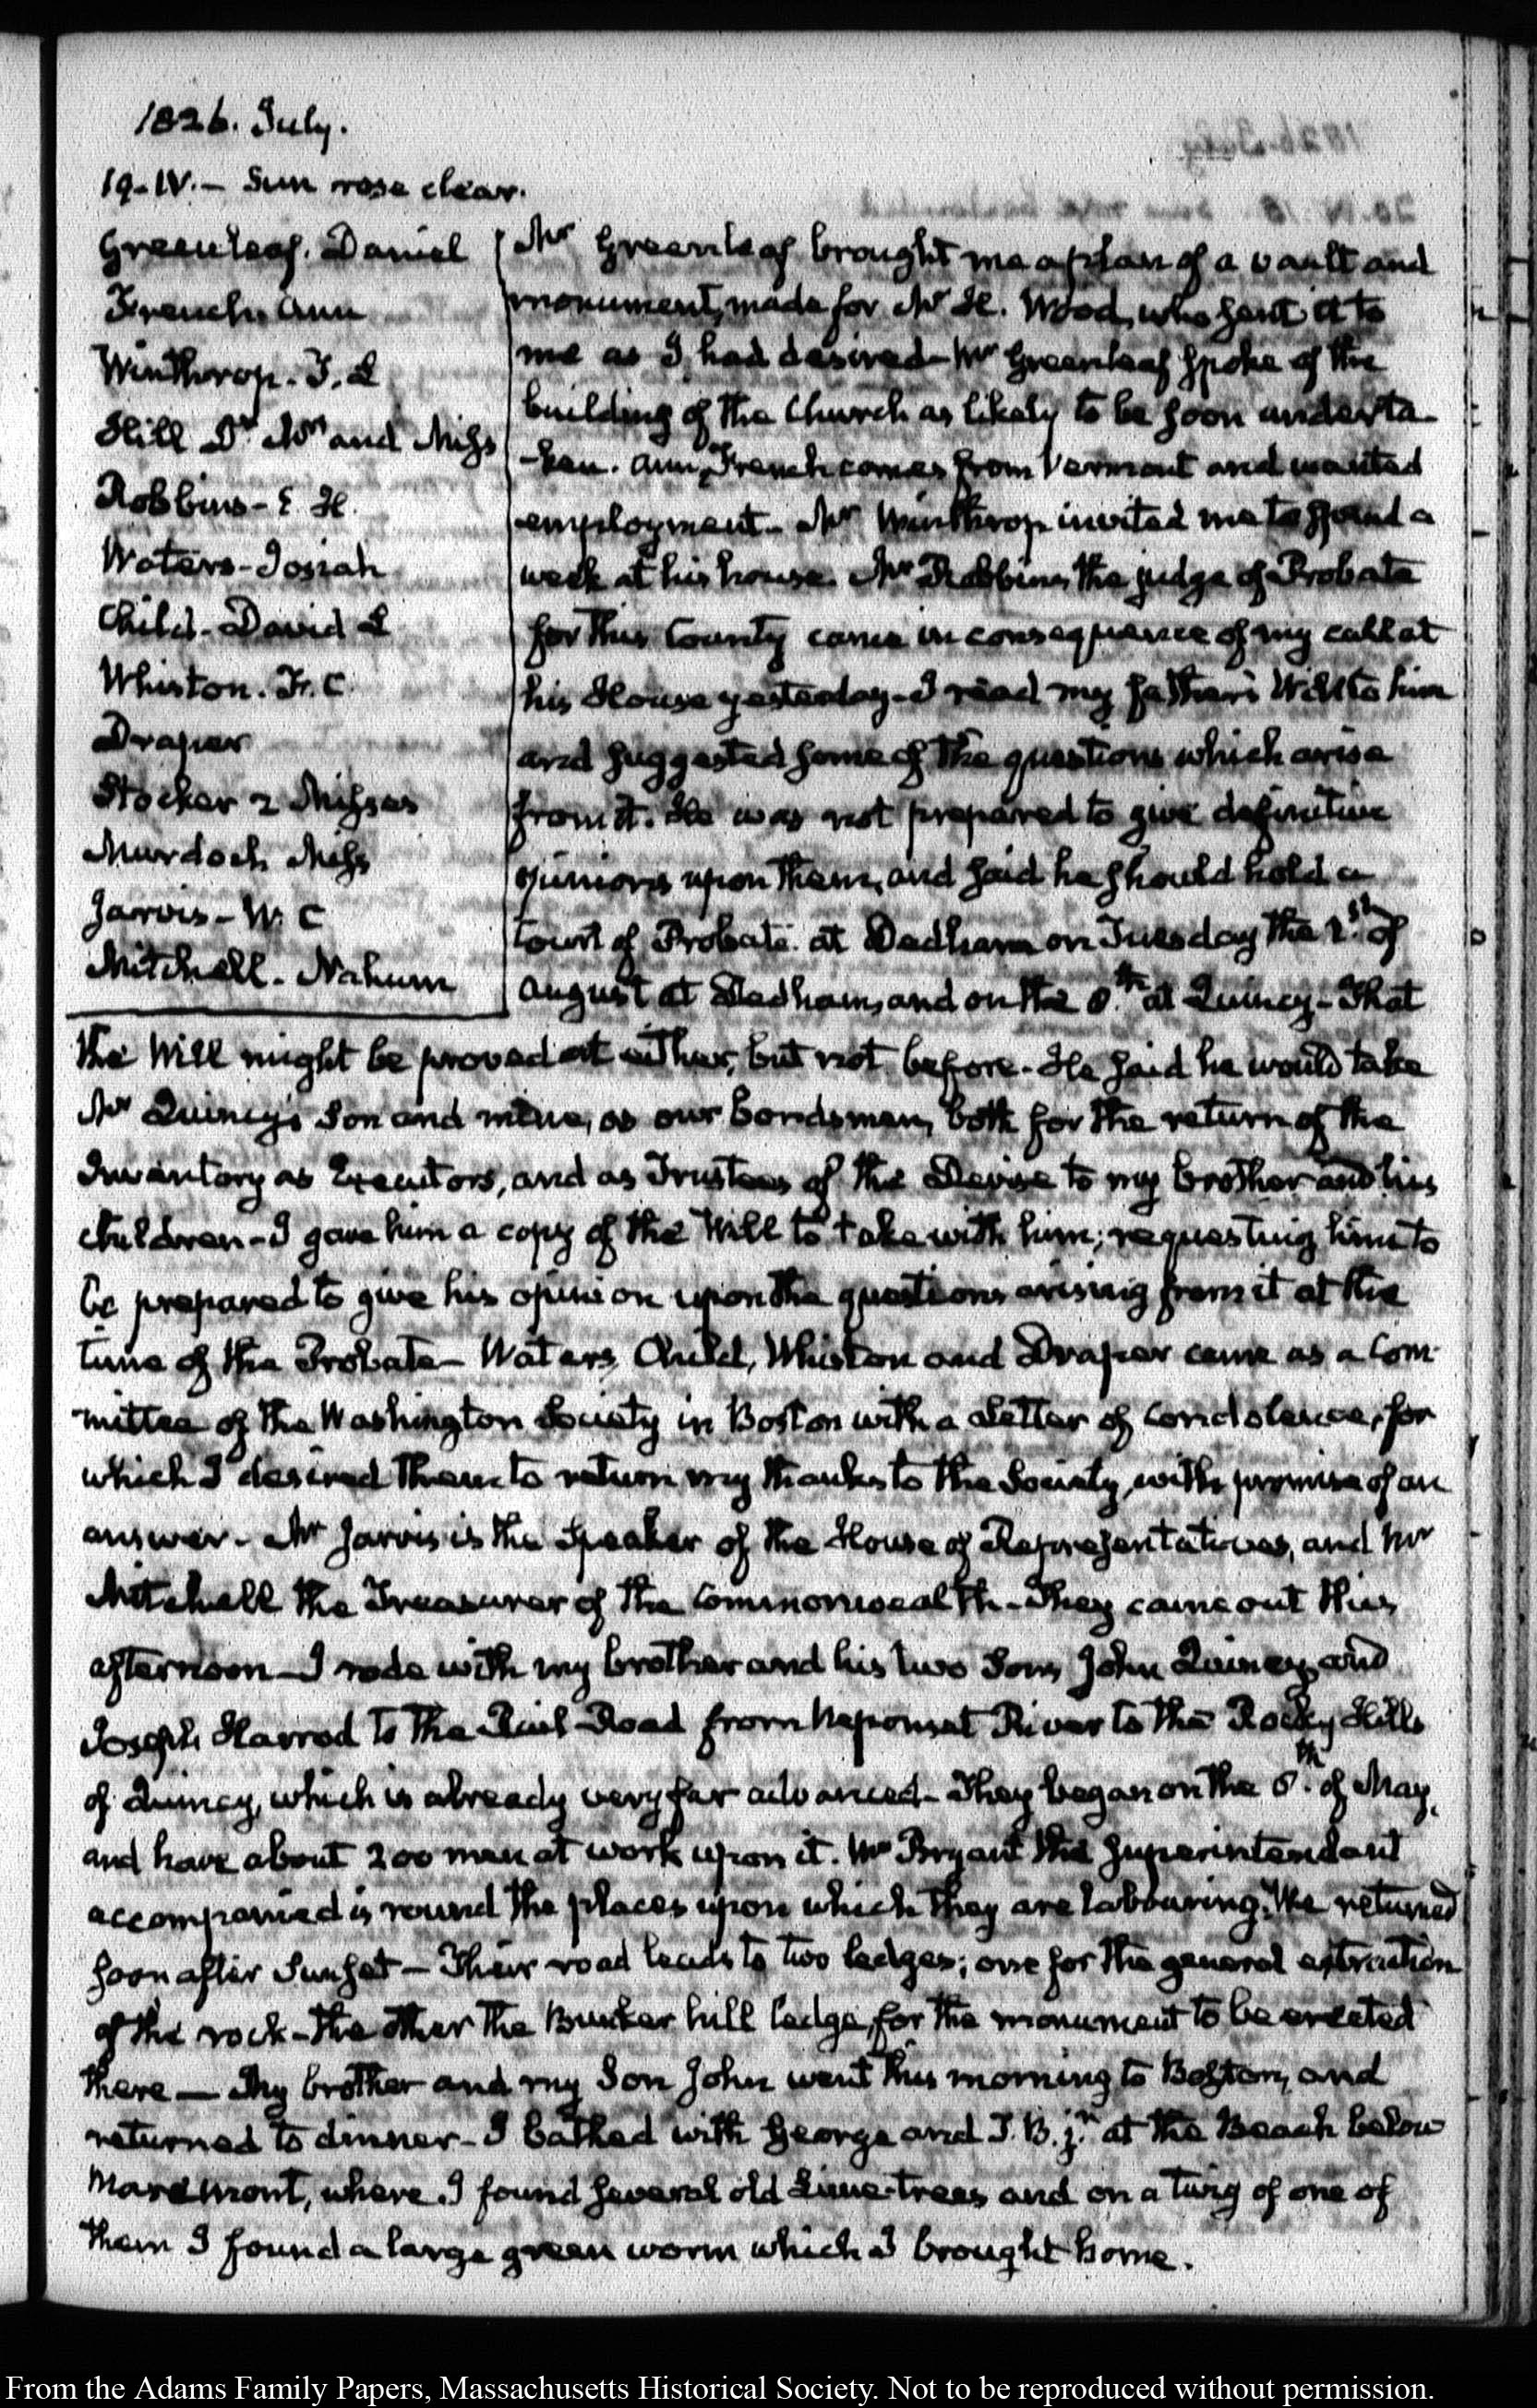 1826. July.
19-IV.- Sun rose clear.
Greenleaf. Daniel
French. Ann
Winthrop. T. L
Hill Dr. Mrs and Miss
Robbins- E. H.
Waters- Josiah
Child- David L
Whiston. F. C
Draper
Stocker 2 Misses
Murdoch Miss
Jarvis- W. C
Mitchell- Nahum
Mr Greenleaf brought me a plan of a vault and
monument, made for Mr H. Wood, who sent it to
me as I had desired- Mr Greenleaf spoke of the
building of the Church as likely to be soon underta-
-ken. Ann French comes from Vermont and wanted
employment- Mr Winthrop invited me to spend a
week at his house. Mr Robbins, the judge of Probate
for this County came in consequence of my call at
his House yesterday- I read my father's Will to him
and suggested some of the questions which arise
from it. He was not prepared to give definitive
opinions upon them, and said he should hold a
Court of Probate at Dedham on Tuesday the 1st. of
August at Dedham, and on the 8th. at Quincy- That
the Will might be proved at either, but not before- He said he would take
Mr Quincy's Son and mine, as our bondsmen, both for the return of the
Inventory as Executors, and as Trustees of the Devise to my brother and his
children- I gave him a copy of the Will to take with him; requesting him to
be prepared to give his opinion upon the questions arising from it at the
time of the Probate- Waters, Child, Whiston and Draper came as a Com-
mittee of the Washington Society in Boston with a Letter of condolence, for
which I desired them to return my thanks to the Society, with promise of an
answer- Mr Jarvis is the Speaker of the House of Representatives, and Mr
Mitchell the Treasurer of the Commonwealth- They came out this
afternoon- I rode with my brother and his two Sons John Quincy, and
Joseph Harrod to the Rail-Road from Neponset River to the Rocky Hills
of Quincy, which is already very far advanced- They began on the 8th. of May,
and have about 200 men at work upon it. Mr Bryant the Superintendant
accompanied is round the places upon which they are labouring. We returned
soon after Sunset- Their road leads to two ledges; one for the general extraction
of the rock- the other the Bunker hill ledge, for the monument to be erected
there- My brother and my Son John went this morning to Boston, and
returned to dinner- I bathed with George and T. B. jr. at the Beach below
Maremount, where I found several old Lime-trees and on a twig of one of
them I found a large green worm which I brought home.
From the Adams Family Papers, Massachusetts Historical Society. Not to be reproduced without permission.